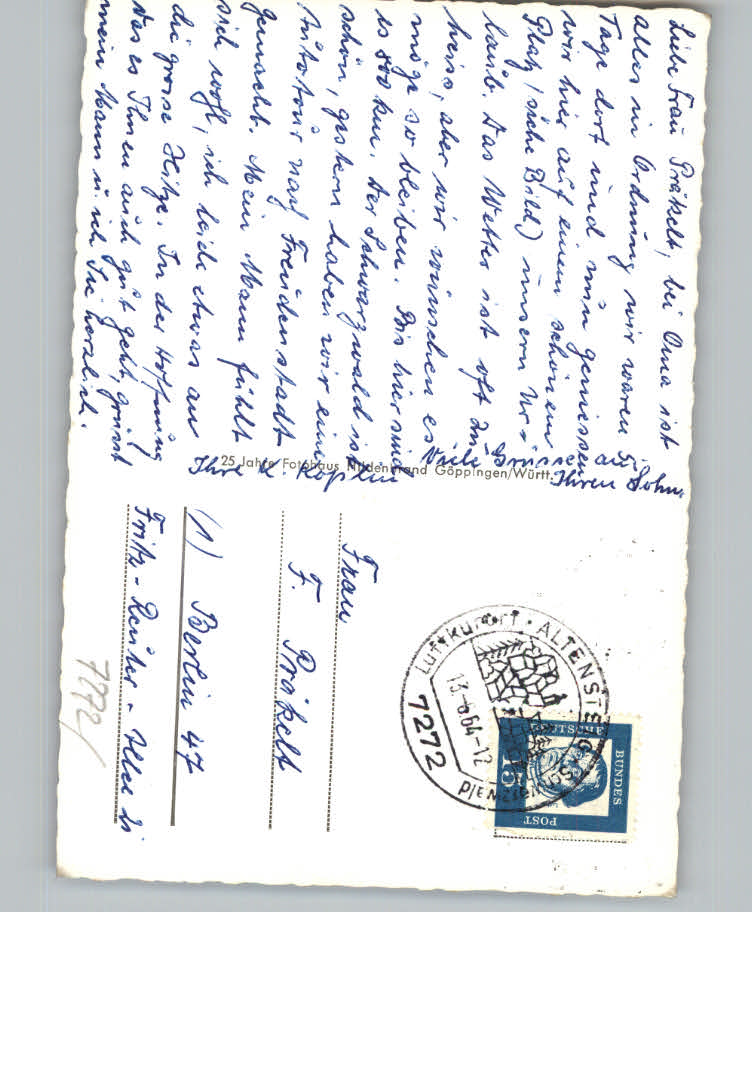 Liebe Frau Präkelt, bei Oma ist
alles in Ordnung wir waren 5
Tage dort und nun geniessen
wir hier auf einem schönen
Platz (siehe Bild) unsern Ur-
laub. Das Wetter ist oft zu
heiss, aber wir wünschen es
möge so bleiben. Bis hier sind
es 800 km. Der Schwarzwald ist
schön, gestern haben wir eine
Autotour nach Freudenstadt
gemacht. Mein Mann fühlt
sich wohl, ich leide etwas an
die grosse Hitze. In der Hoffnung
das es Ihnen auch gut geht, grüsst
mein Mann u. ich Sie herzlich.
Viele Grüsse an
Ihren Sohn
Ihre K. Köplin
25 Jahre Fotohaus Hildenbrand Göppingen/Württ.
Frau
F. Präkelt
(1) Berlin 47
Fritz-Reuter-Allee
7272
Luftkurort · ALTENSTEIG
13.-6.64-12
7272
BUNDES
POST
15